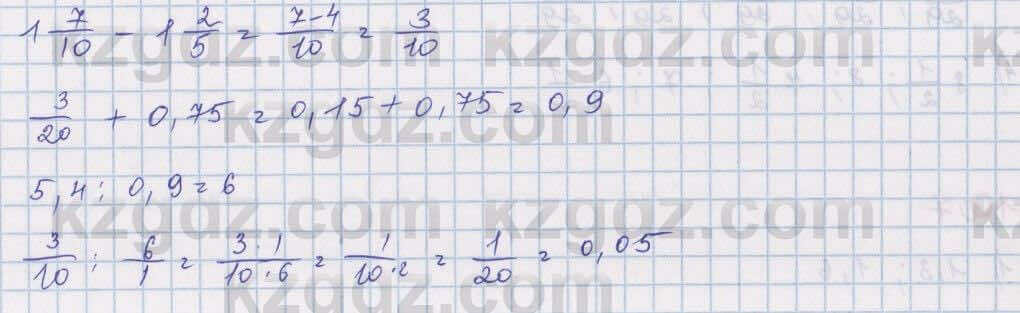 1 7/10 - 1 2/5 = 7-4/10 = 3/10
3/20 + 0,75 = 0,15 + 0,75 = 0,9
5,4 : 0,9 = 6
3/10 : 6/1 = 3·1/10·6 = 1/10·2 = 1/20 = 0,05
kzgdz.com
kzgdz.com
kzgdz.com
kzgdz.com